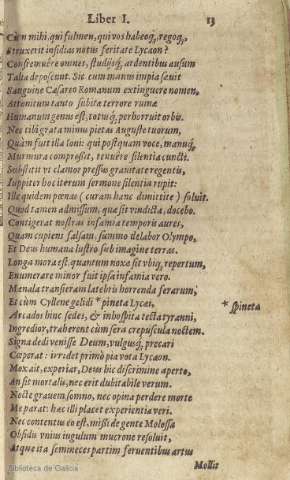 Liber I. 13
Cùm mihi, qui fulmen, qui vos habeoq́, regoq́,
Struxerit insidias notus feritate Lycaon?
Confremuêre omnes, studijsq́, ardentibus ausum
Talia deposcunt. Sic cum manus impia sæuit
Sanguine Cæsareo Romanum extinguere nomen,
Attonitum tanto subitæ terrore ruinæ
Humanum genus est, totusq́, perhorruit orbis.
Nec tibi grata minus pietas Auguste tuorum,
Quàm fuit illa Ioui: qui postquam voce, manuq́,
Murmura compressit, tenuêre silentia cuncti.
Substitit vt clamor pressus grauitate regentis,
Iuppiter hoc iterum sermone silentia rupit:
Ille quidem pœnas (curam hanc dimittite) soluit.
Quod tamen admissum, quæ sit vindicta, docebo.
Contigerat nostras infamia temporis aures,
Quam cupiens falsam, summo delabor Olympo,
Et Deus humana lustro sub imagine terras.
Longa mora est, quantum noxæ sit vbiq́, repertum,
Enumerare minor fuit ipsa infamia vero.
Mænala transieram latebris horrenda ferarum;
Et cùm Cyllene gelidi * pineta Lycæi, * spineta
Arcados hinc sedes, & inhospita tecta tyranni,
Ingredior, traherent cùm sera crepuscula noctem.
Signa dedi venisse Deum, vulgusq́, precari
Cæperat: irridet primò pia vota Lycaon.
Mox ait, experiar, Deus hic discrimine aperto,
An sit mortalis, nec erit dubitabile verum.
Nocte grauem somno, nec opina perdere morte
Me parat: hæc illi placet experientia veri.
Nec contentus eo est, missi de gente Molossa
Obsidis vnius iugulum mucrone resoluit,
Atque ita semineces partim feruentibus artus
Mollit
Biblioteca de Galicia